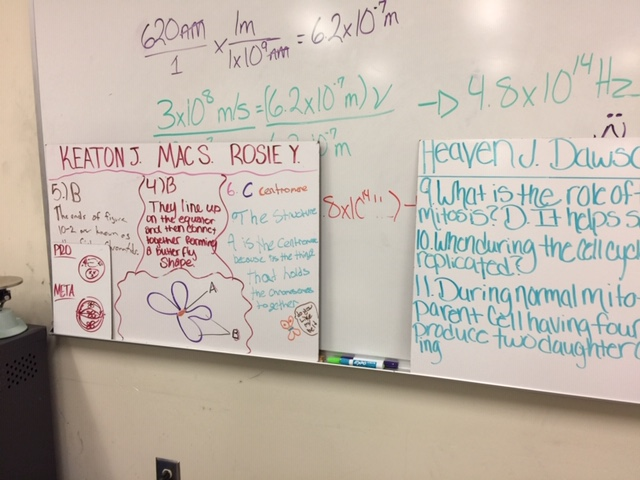 620nm/1 x 1m/1x10⁹nm = 6.2x10⁻⁷m
3x10⁸ m/s = (6.2x10⁻⁷m)ν → 4.8x10¹⁴ Hz
⁻⁷m
8x10¹⁴
KEATON J. MAC S. ROSIE Y.
5.) B
The ends of figure
10-2 are known as
PRO
META
4) B
They line up
on the equator
and then connect
together forming
a butterfly
shape.
A
B
6. C Centromere
The structure
A is the centromere
because its the thing
that holds
the chromosomes
together
Heaven J. Daws
9. What is the role of t
mitosis? D. It helps s
10. When during the cell cycl
replicated?
11. During normal mito
parent cell having four
produce two daughter c
ing